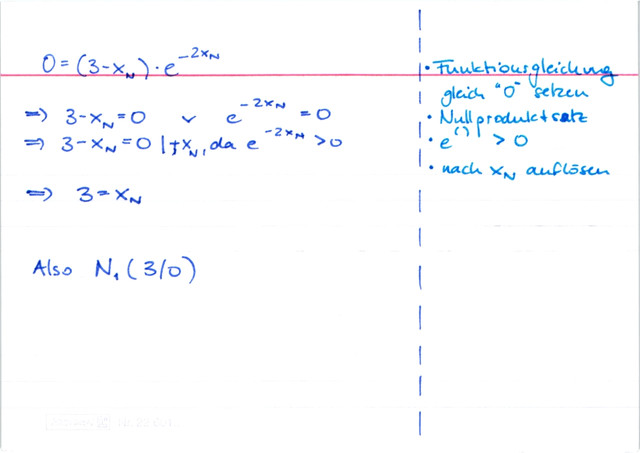 0 = (3-x_N) · e^{-2x_N}
⇒ 3-x_N = 0 ∨ e^{-2x_N} = 0
⇒ 3-x_N = 0 |+x_N, da e^{-2x_N} > 0
⇒ 3 = x_N
Also N_1 (3/0)
• Funktionsgleichung
gleich "0" setzen
• Nullproduktsatz
• e^{( )} > 0
• nach x_N auflösen